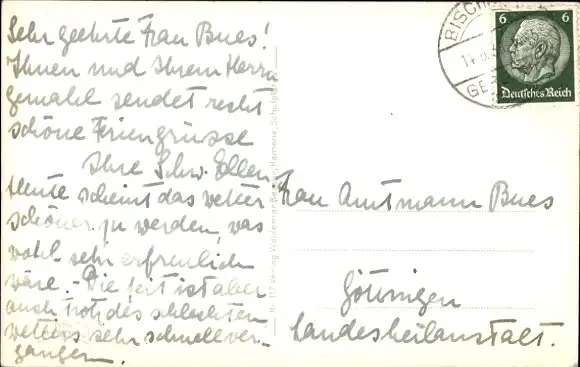 Sehr geehrte Frau Bues!
Ihnen und Ihrem Herrn
gemahl sendet recht
schöne Feriengrüsse
Ihre Schw. Ellen
Heute scheint das wetter
schöner zu werden, was
wohl sehr erfreulich
wäre. - Die Zeit ist aber
auch trotz des schlechten
wetters sehr schnell ver-
gangen.
Frau Amtmann Bues
Göttingen
Landesheilanstalt.
6 6
Deutsches Reich
BISCH
14
GE
Nr. 117 Verlag
Kamenz, Schulplatz